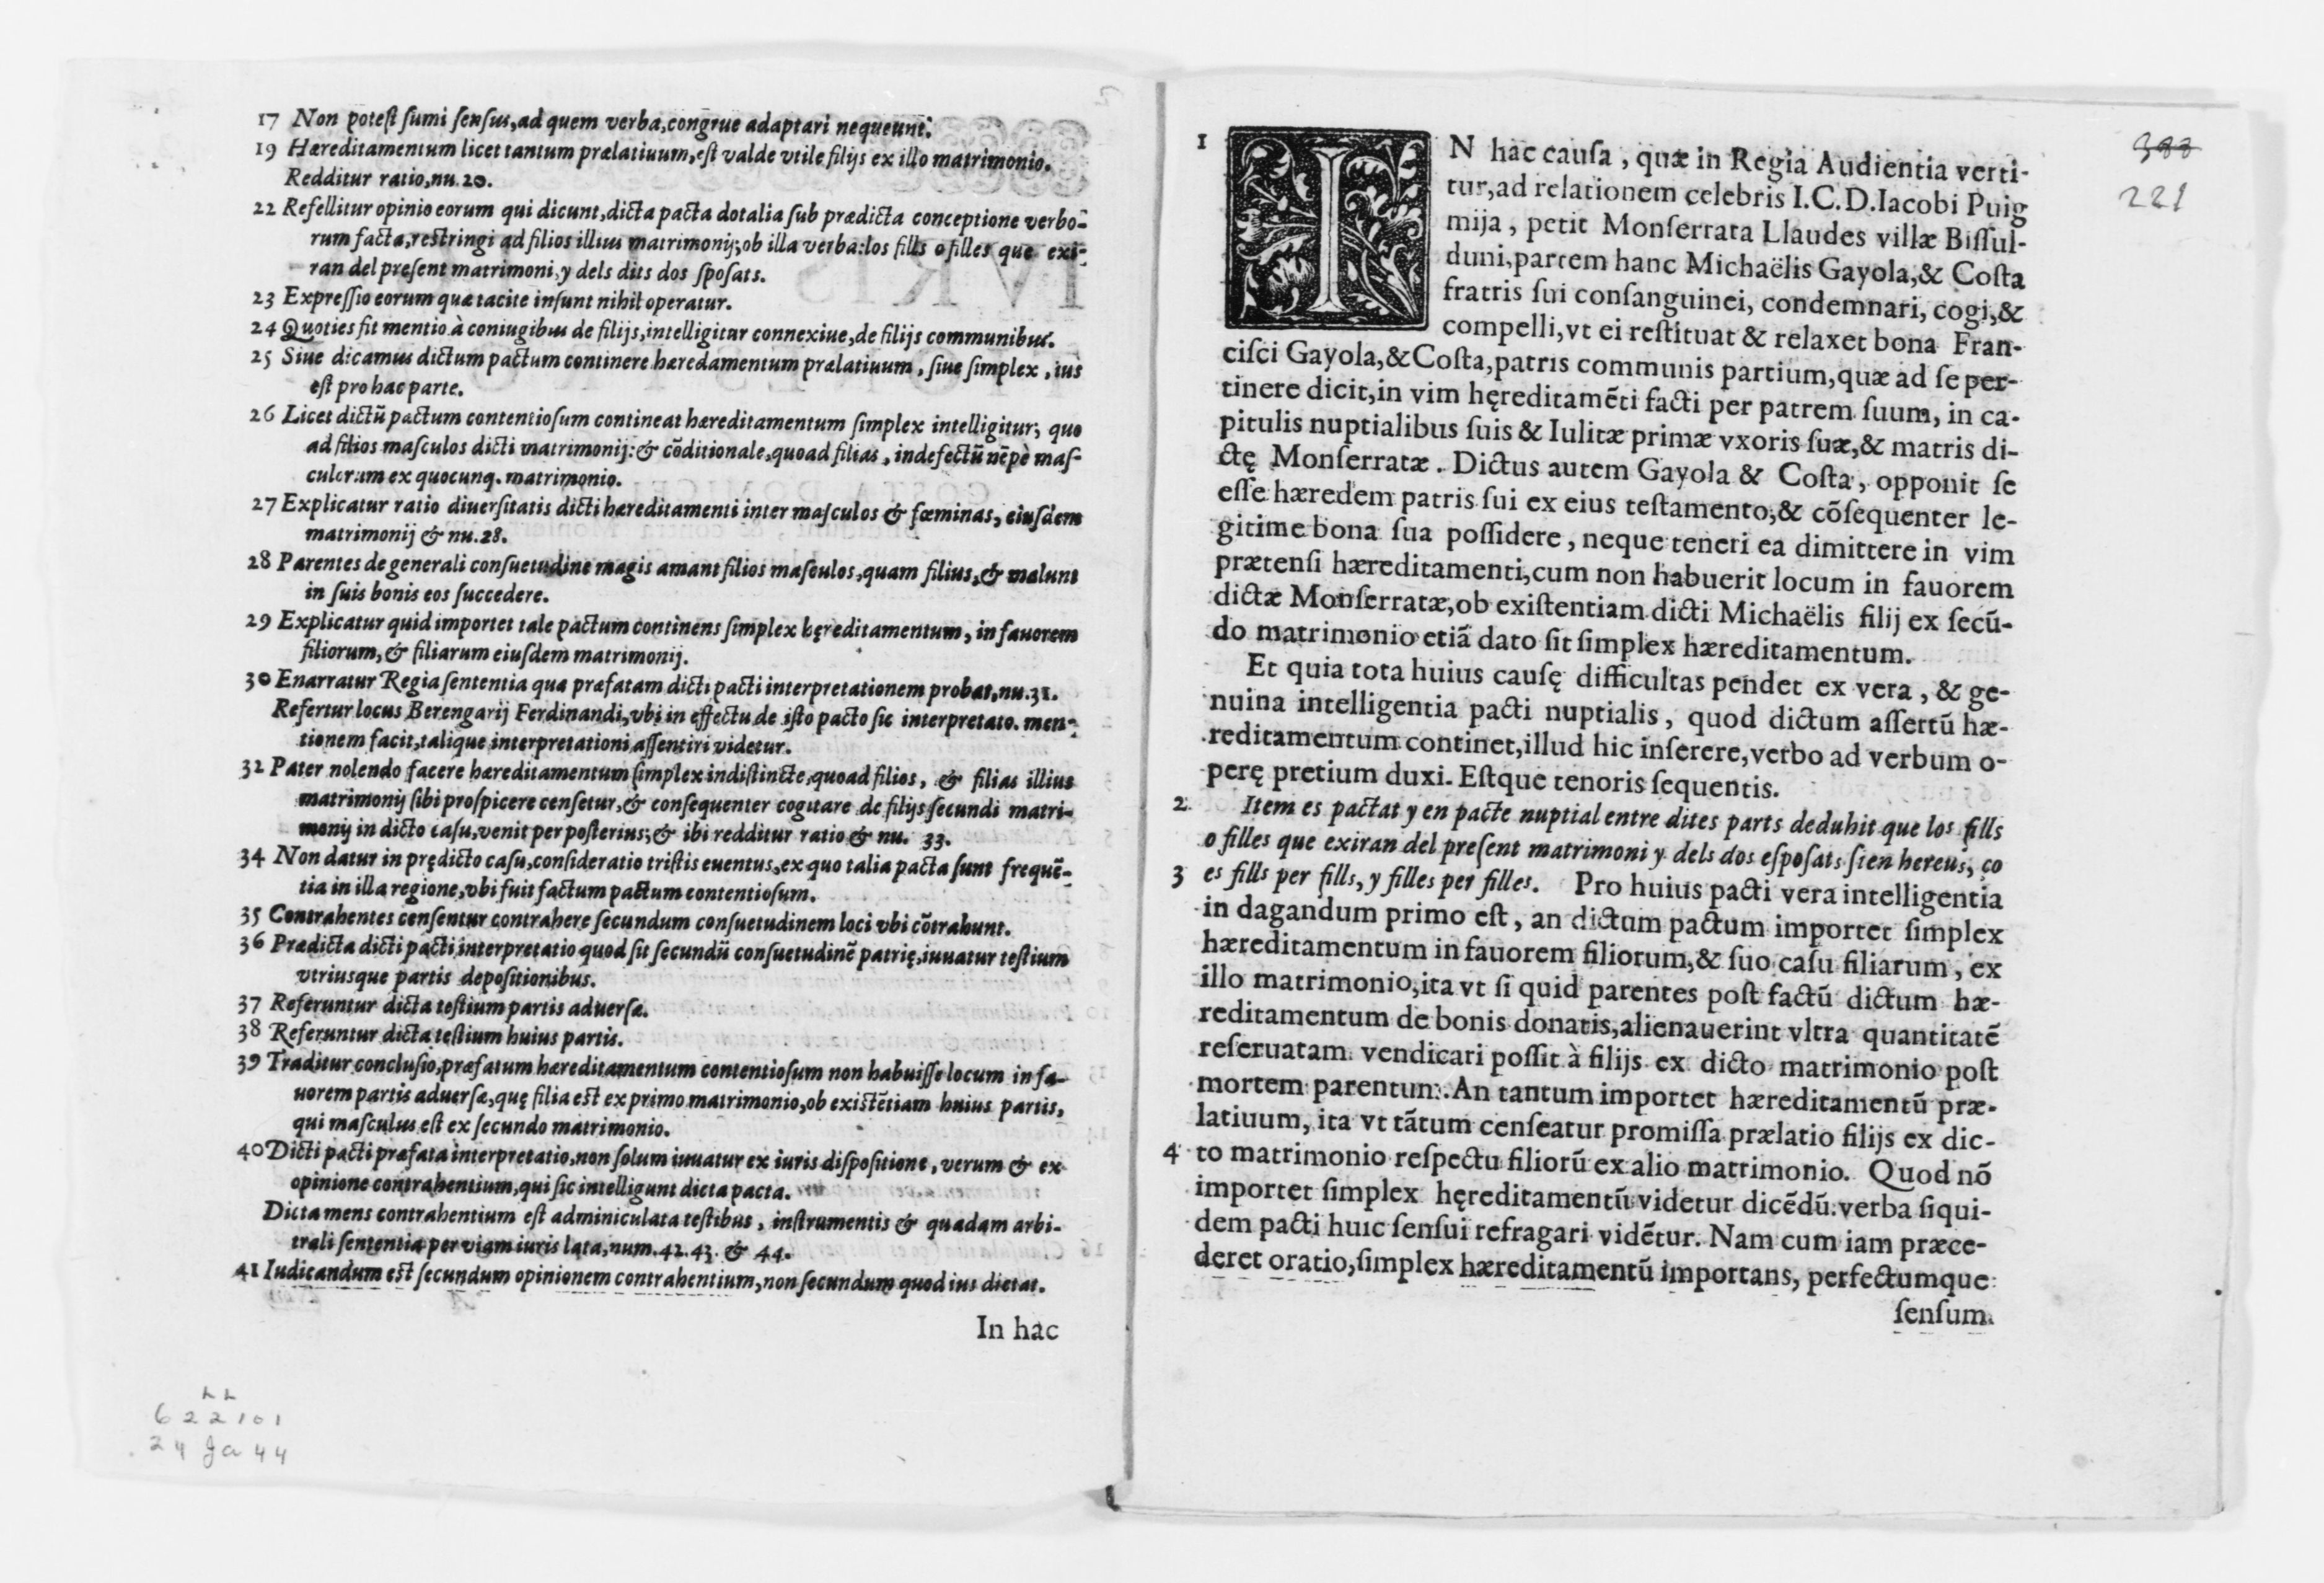 17 Non potest sumi sensus, ad quem verba, congrue adaptari nequeunt.
19 Hæreditamentum licet tantum prælatiuum, est valde vtile filijs ex illo matrimonio.
Redditur ratio, nu. 20.
22 Refellitur opinio eorum qui dicunt, dicta pacta dotalia sub prædicta conceptione verbo-
rum facta, restringi ad filios illius matrimonij; ob illa verba: los fills o filles que exi-
ran del present matrimoni, y dels dits dos sposats.
23 Expressio eorum quæ tacite insunt nihil operatur.
24 Quoties fit mentio à coniugibus de filijs, intelligitur connexiue, de filijs communibus.
25 Siue dicamus dictum pactum continere hæredamentum prælatiuum, siue simplex, ius
est pro hac parte.
26 Licet dictũ pactum contentiosum contineat hæreditamentum simplex intelligitur, quo
ad filios masculos dicti matrimonij: & cõditionale, quoad filias, in defectũ nẽpè mas-
culorum ex quocunq. matrimonio.
27 Explicatur ratio diuersitatis dicti hæreditamenti inter masculos & fœminas, eiusdem
matrimonij & nu. 28.
28 Parentes de generali consuetudine magis amant filios masculos, quam filias, & malunt
in suis bonis eos succedere.
29 Explicatur quid importet tale pactum continens simplex hęreditamentum, in fauorem
filiorum, & filiarum eiusdem matrimonij.
30 Enarratur Regia sententia quæ præfatam dicti pacti interpretationem probat, nu. 31.
Refertur locus Berengarij Ferdinandi, vbi in effectu de isto pacto sic interpretato. men-
tionem facit, talique interpretationi assentiri videtur.
32 Pater nolendo facere hæreditamentum simplex indistincte, quoad filios, & filias illius
matrimonij sibi prospicere censetur, & consequenter cogitare de filijs secundi matri-
monij in dicto casu, venit per posterius; & ibi redditur ratio & nu. 33.
34 Non datur in prędicto casu, consideratio tristis euentus, ex quo talia pacta sunt frequẽ-
tia in illa regione, vbi fuit factum pactum contentiosum.
35 Contrahentes censentur contrahere secundum consuetudinem loci vbi cõtrahunt.
36 Prædicta dicti pacti interpretatio quod sit secundũ consuetudinẽ patrię, iuuatur testium
vtriusque partis depositionibus.
37 Referuntur dicta testium partis aduersæ.
38 Referuntur dicta testium huius partis.
39 Traditur conclusio, præfatum hæreditamentum contentiosum non habuisse locum in fa-
uorem partis aduersæ, quę filia est ex primo matrimonio, ob existẽtiam huius partis,
qui masculus est ex secundo matrimonio.
40 Dicti pacti præfata interpretatio, non solum iuuatur ex iuris dispositione, verum & ex
opinione contrahentium, qui sic intelligunt dicta pacta.
Dicta mens contrahentium est adminiculata testibus, instrumentis & quadam arbi-
trali sententia per viam iuris lata, num. 42. 43. & 44.
41 Iudicandum est secundum opinionem contrahentium, non secundum quod ius dictat.
In hac
LL
622101
24 Ja 44
388
221
1 IN hac causa, quæ in Regia Audientia verti-
tur, ad relationem celebris I.C.D. Iacobi Puig
mija, petit Monserrata Llaudes villæ Bissul-
duni, partem hanc Michaëlis Gayola, & Costa
fratris sui consanguinei, condemnari, cogi, &
compelli, vt ei restituat & relaxet bona Fran-
cisci Gayola, & Costa, patris communis partium, quæ ad se per-
tinere dicit, in vim hęreditamẽti facti per patrem suum, in ca-
pitulis nuptialibus suis & Iulitæ primæ vxoris suæ, & matris di-
ctę Monserratæ. Dictus autem Gayola & Costa, opponit se
esse hæredem patris sui ex eius testamento, & cõsequenter le-
gitime bona sua possidere, neque teneri ea dimittere in vim
prætensi hæreditamenti, cum non habuerit locum in fauorem
dictæ Monserratæ, ob existentiam dicti Michaëlis filij ex secũ-
do matrimonio etiã dato sit simplex hæreditamentum.
Et quia tota huius causę difficultas pendet ex vera, & ge-
nuina intelligentia pacti nuptialis, quod dictum assertũ hæ-
reditamentum continet, illud hic inserere, verbo ad verbum o-
perę pretium duxi. Estque tenoris sequentis.
2 Item es pactat y en pacte nuptial entre dites parts deduhit que los fills
o filles que exiran del present matrimoni y dels dos esposats sien hereus, ço
3 es fills per fills, y filles per filles. Pro huius pacti vera intelligentia
in dagandum primo est, an dictum pactum importet simplex
hæreditamentum in fauorem filiorum, & suo casu filiarum, ex
illo matrimonio, ita vt si quid parentes post factũ dictum hæ-
reditamentum de bonis donatis, alienauerint vltra quantitatẽ
reseruatam vendicari possit à filijs ex dicto matrimonio post
mortem parentum. An tantum importet hæreditamentũ præ-
latiuum, ita vt tãtum censeatur promissa prælatio filijs ex dic-
4 to matrimonio respectu filiorũ ex alio matrimonio. Quod nõ
importet simplex hęreditamentũ videtur dicẽdũ: verba siqui-
dem pacti huic sensui refragari vidẽtur. Nam cum iam præce-
deret oratio, simplex hæreditamentũ importans, perfectumque
sensum